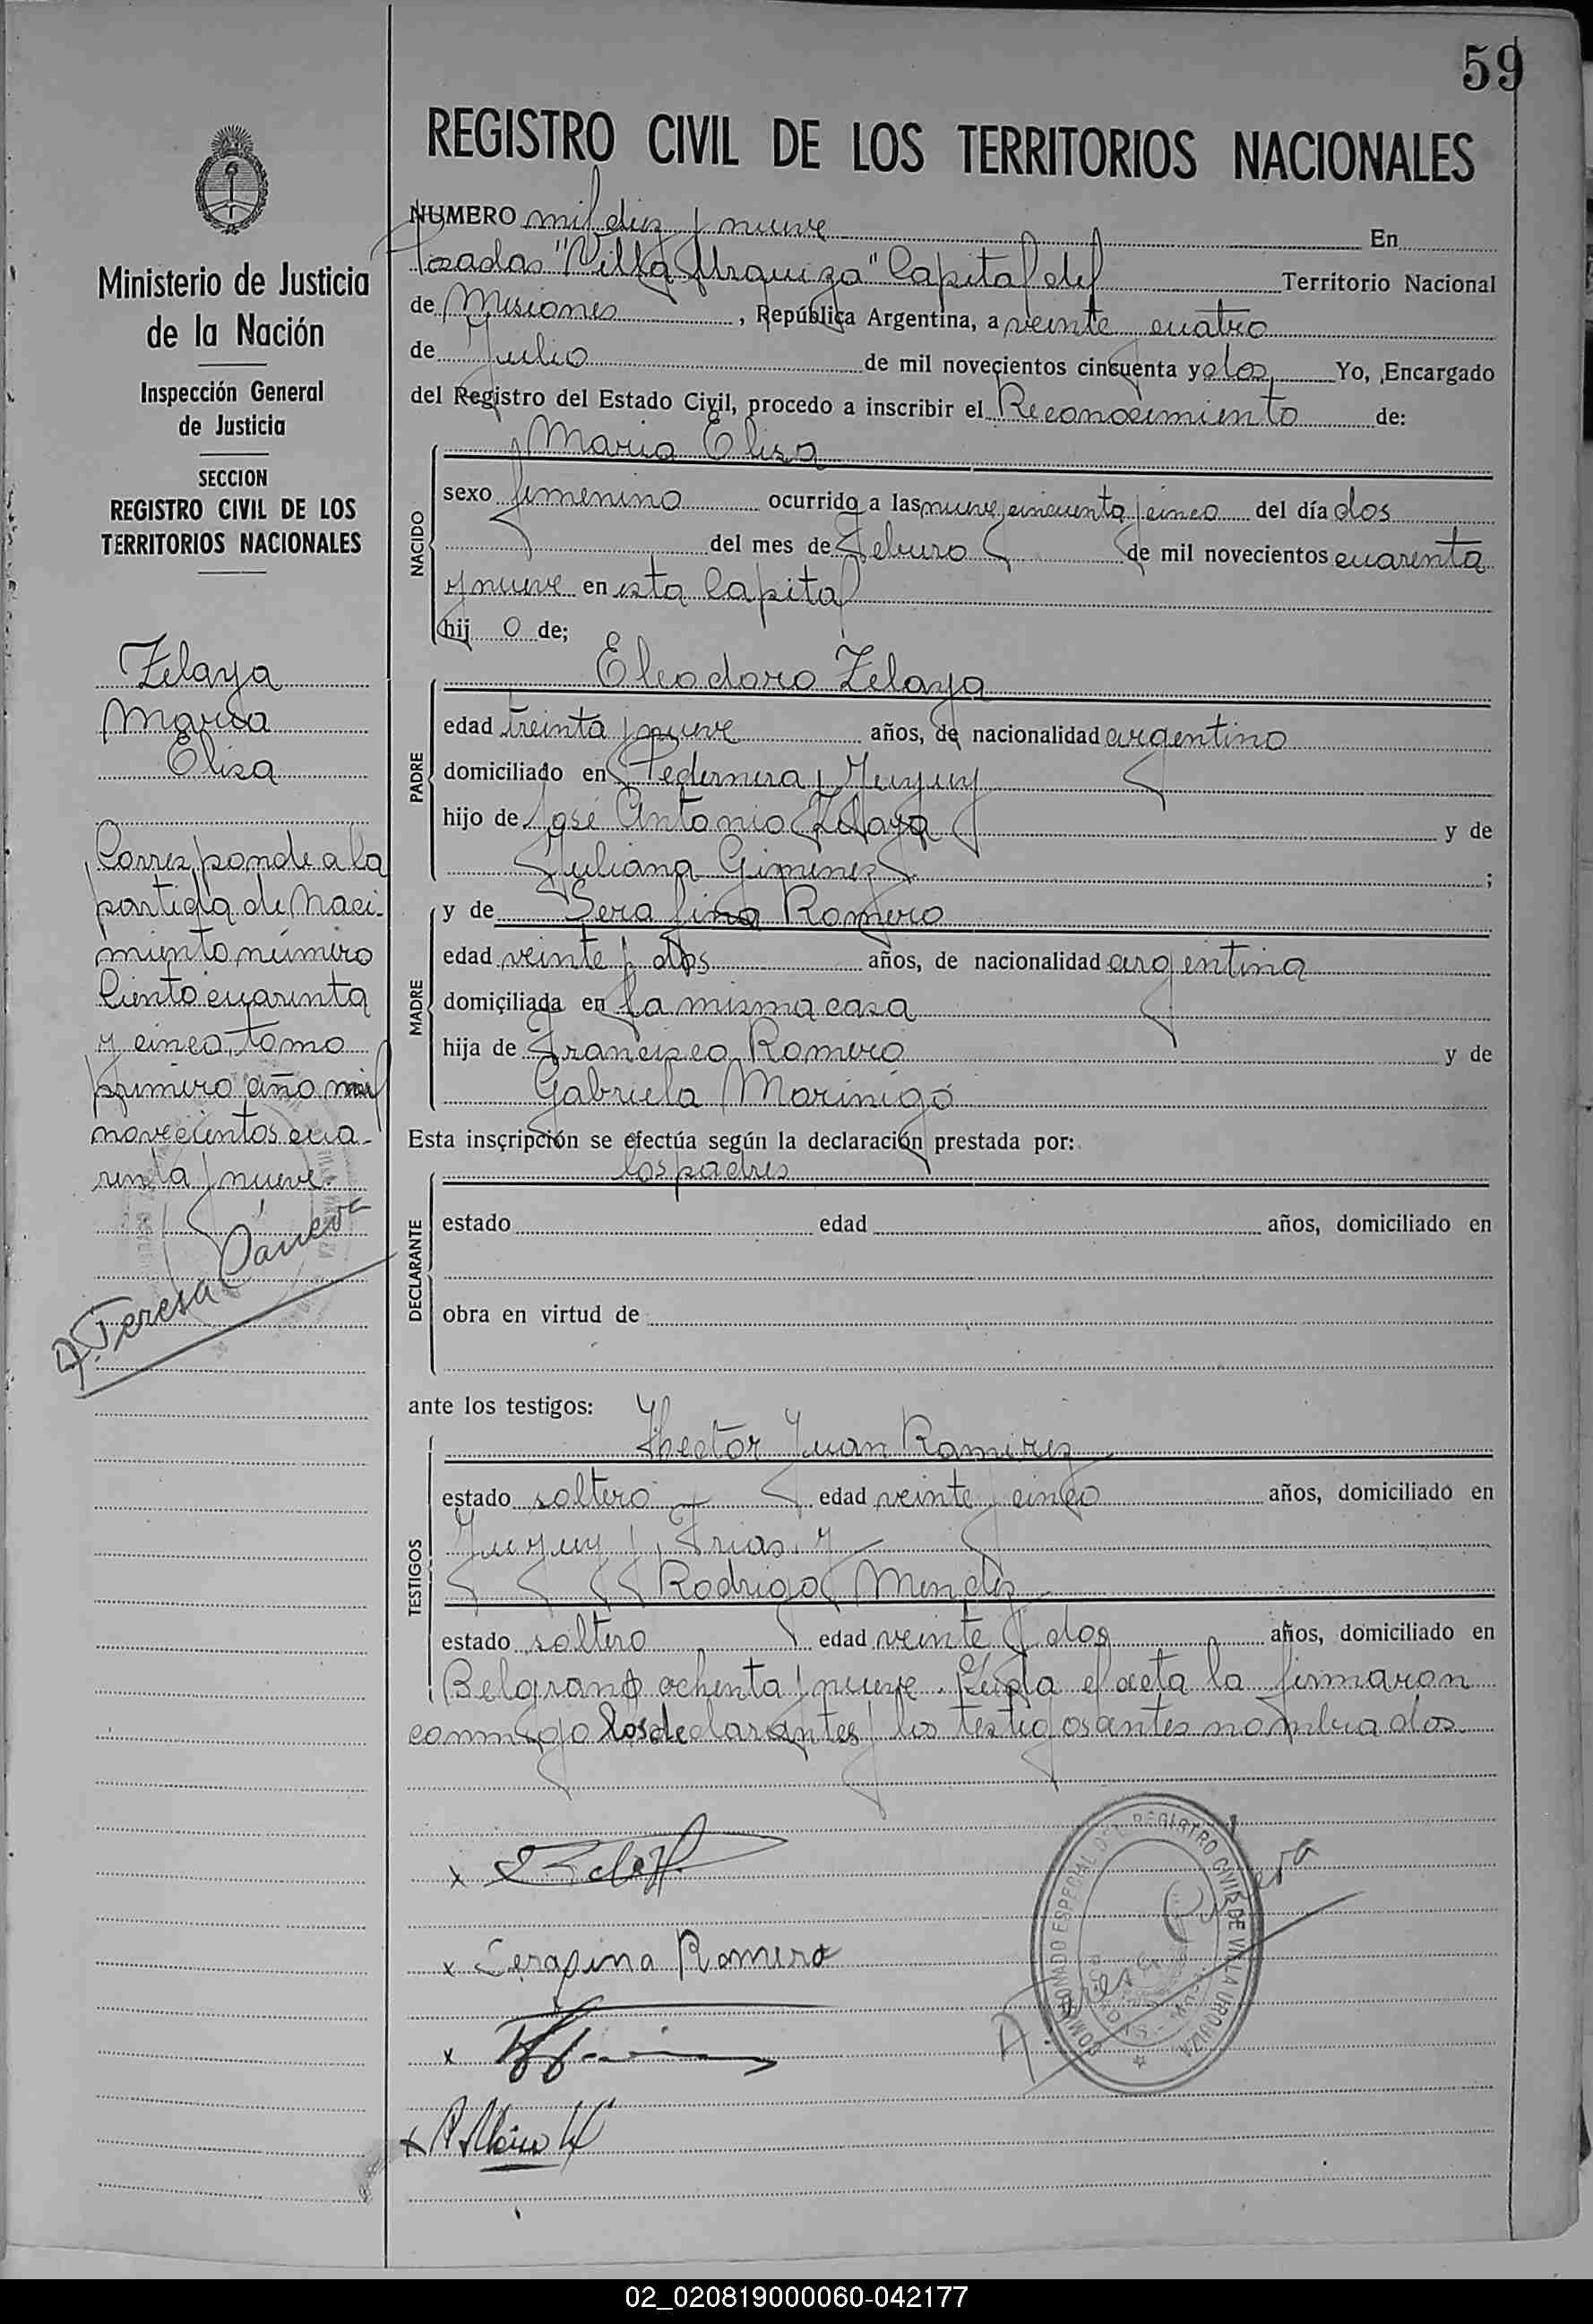 59
REGISTRO CIVIL DE LOS TERRITORIOS NACIONALES
Ministerio de Justicia
de la Nación
Inspección General
de Justicia
SECCION
REGISTRO CIVIL DE LOS
TERRITORIOS NACIONALES
Zelaya
Maria
Elisa
Corresponde a la
partida de Naci-
miento número
Ciento cuarenta
y cinco, tomo
primero año mil
novecientos cua-
renta y nueve.
A. Teresa
NUMERO mil diez y nueve En
Posadas "Villa Urquiza" Capital del Territorio Nacional
de Misiones, República Argentina, a veinte cuatro
de Julio de mil novecientos cincuenta y dos, Yo, Encargado
del Registro del Estado Civil, procedo a inscribir el Reconocimiento de:
NACIDO
Maria Elisa
sexo femenino ocurrido a las nueve y cincuenta y cinco del día dos
del mes de Febrero de mil novecientos cuarenta
y nueve en esta Capital
hij o de;
PADRE
Eleodoro Zelaya
edad treinta y nueve años, de nacionalidad argentino
domiciliado en Pedernera y Jujuy
hijo de José Antonio Zelaya y de
Juliana Gimenez ;
MADRE
y de Serafina Romero
edad veinte y dos años, de nacionalidad argentina
domiciliada en la misma casa
hija de Francisco Romero y de
Gabriela Marinigo
Esta inscripción se efectúa según la declaración prestada por:
DECLARANTE
los padres
estado edad años, domiciliado en
obra en virtud de
ante los testigos:
TESTIGOS
Hector Juan Ramirez
estado soltero edad veinte y cinco años, domiciliado en
Jujuy y Frias y
Rodrigo Mendez
estado soltero edad veinte y dos años, domiciliado en
Belgrano ochenta y nueve. Leida el acta la firmaron
conmigo los declarantes y los testigos antes nombrados.
x
x Serafina Romero
x
x
COMISIONADO ESPECIAL DEL REGISTRO CIVIL DE VILLA URQUIZA
02_020819000060-042177